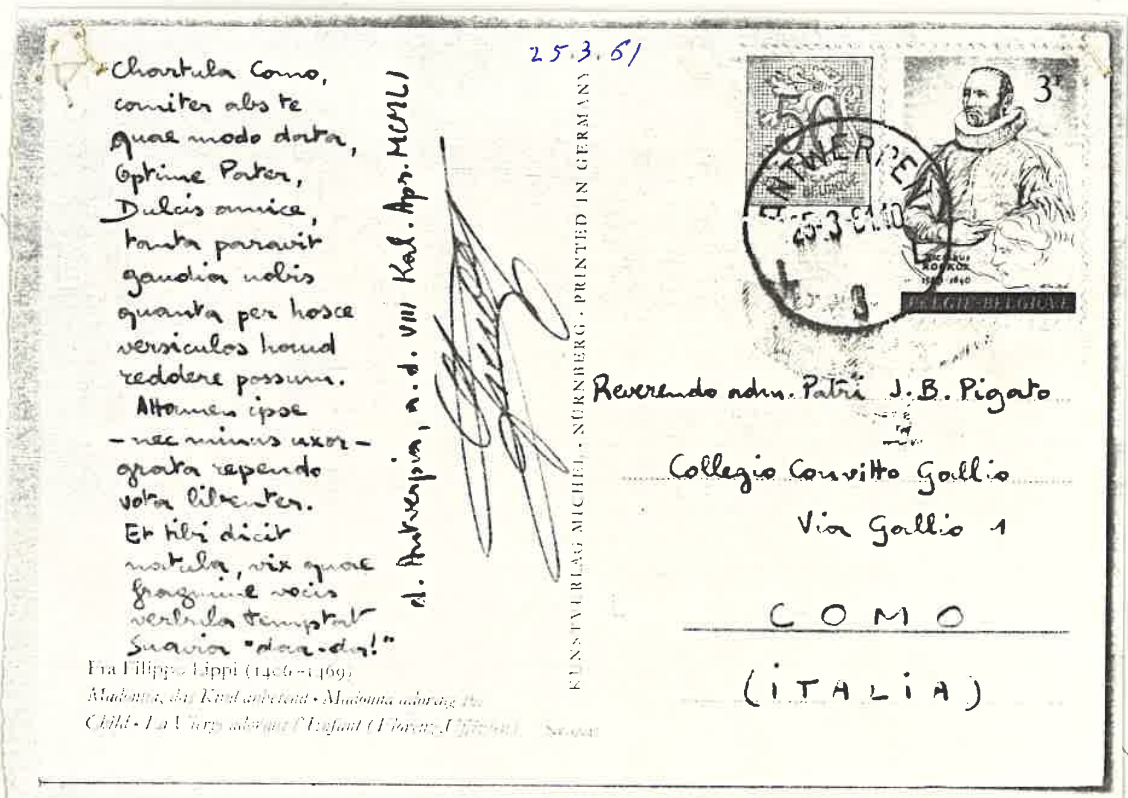 25.3.61
Chartula Como,
comiter abs te
quae modo data,
Optime Pater,
Dulcis amice,
tanta paravit
gaudia nobis
quanta per hosce
versiculos haud
reddere possum.
Attamen ipse
– nec minus uxor –
grata rependo
vota libenter.
Et tibi dicit
natula, vix quae
fragmine vocis
verbula temptat
suavia "daa-da!"
d. Antverpia, a.d. VIII Kal. Apr. MCMLI
Fra Filippo Lippi (1406–1469)
Madonna, das Kind anbetend • Madonna adoring the
Child • La Vierge adorant l'Enfant (Florenz,
KUNSTVERLAG MICHEL · NÜRNBERG · PRINTED IN GERMANY
50
BELGIQUE
3F
ROCKOX
1560-1640
BELGIE-BELGIQUE
ANTWERPEN
25-3-61 10
Reverendo adm. Patri J. B. Pigato
Collegio Convitto Gallio
Via Gallio 1
COMO
(ITALIA)